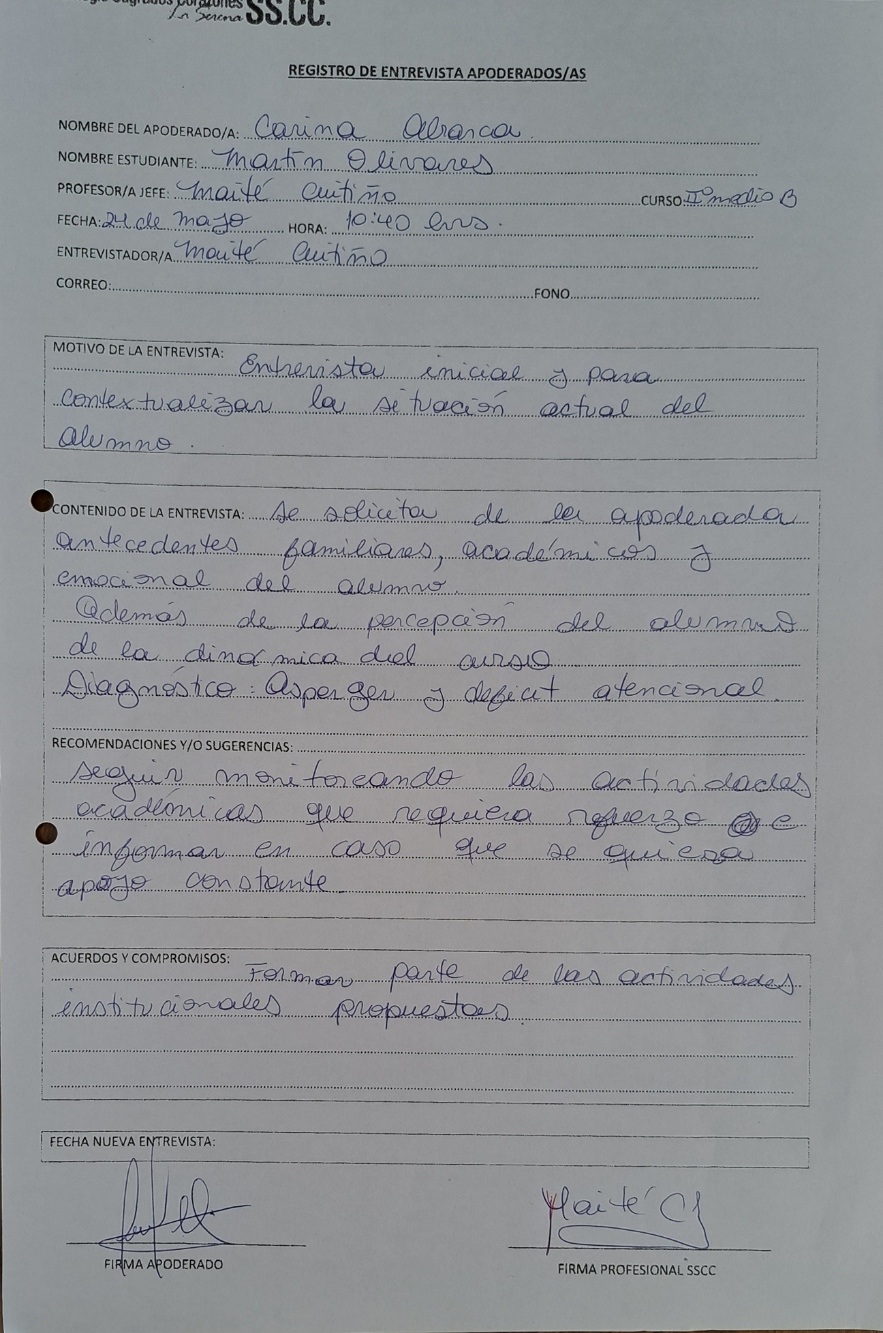 Sagrados Corazones
La Serena SS.CC.
REGISTRO DE ENTREVISTA APODERADOS/AS
NOMBRE DEL APODERADO/A: Carina Abarca
NOMBRE ESTUDIANTE: Martín Olivares
PROFESOR/A JEFE: Maité Cutiño CURSO: IIº medio B
FECHA: 24 de mayo HORA: 10:40 hrs.
ENTREVISTADOR/A Maité Cutiño
CORREO: FONO
MOTIVO DE LA ENTREVISTA:
Entrevista inicial y para
contextualizar la situación actual del
alumno.
CONTENIDO DE LA ENTREVISTA: Se solicita de la apoderada
antecedentes familiares, académicos y
emocional del alumno.
Además de la percepción del alumno
de la dinámica del curso
Diagnóstico: Asperger y deficit atencional.
RECOMENDACIONES Y/O SUGERENCIAS:
seguir monitoreando las actividades
académicas que requiera refuerzo e
informar en caso que se quiera
apoyo constante
ACUERDOS Y COMPROMISOS:
Formar parte de las actividades
institucionales propuestas.
FECHA NUEVA ENTREVISTA:
Maité C
FIRMA APODERADO
FIRMA PROFESIONAL SSCC